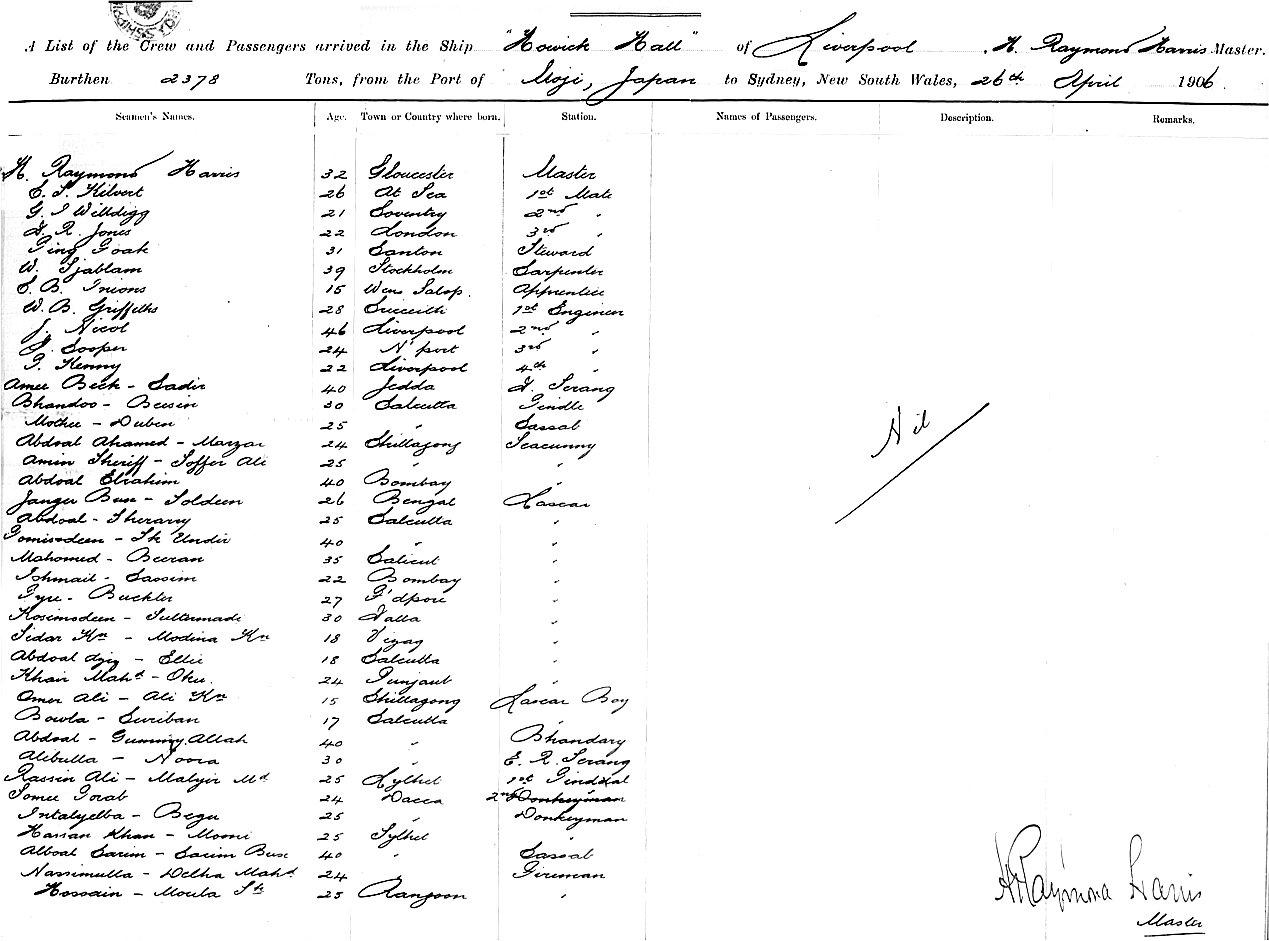 A List of the Crew and Passengers arrived in the Ship "Howick Hall" of Liverpool, H. Raymond Harris Master.
Burthen 2378 Tons, from the Port of Moji, Japan to Sydney, New South Wales, 26th April 1906.
Seamen's Names. Age. Town or Country where born. Station. Names of Passengers. Description. Remarks.
H. Raymond Harris 32 Gloucester Master
E. S. Kilvert 26 At Sea 1st Mate
G. I Willdigg 21 Coventry 2nd "
D. R. Jones 22 London 3rd "
Ping Goak 31 Canton Steward
W. Sjablam 39 Stockholm Carpenter
E. B. Inions 15 Wen Salop. Apprentice
W. B. Griffiths 28 Criccieth 1st Engineer
J. Nicol 46 Liverpool 2nd "
J. Cooper 24 N'port 3rd "
T. Kenny 22 Liverpool 4th "
Amee Beck - Sadir 40 Jedda D. Serang
Bhandoo - Beesin 30 Calcutta Tindle
Mother - Duben 25 " Cassab
Abdoal Ahamed - Marzar 24 Chittagong Seacunny
Amin Sheriff - Soffer Ali 25 " "
Abdoal Ebrahim 40 Bombay "
Janger Bux - Toldeen 26 Bengal Lascar
Abdoal - Sherary 25 Calcutta "
Gomisodeen - Sk Undir 40 " "
Mahomed - Beeran 35 Calicut "
Ishmail - Cassim 22 Bombay "
Tyre - Buckler 27 F'dpore "
Kosimodeen - Sultermade 30 Dalla "
Sidar Kn - Modina Kn 18 Vizag "
Abdoal - Ellie 18 Calcutta "
Khair Mahd - Oku. 24 Punjaub "
Omer Ali - Ali Kn 15 Chittagong Lascar Boy
Bowla - Curiban 17 Calcutta "
Abdoal - Gummy Allah 40 " Bhandary
Alibulla - Noora 30 " E. R. Serang
Rassin Ali - Malyir Md 25 Sylhet 1st Tindal
Somee Gorab 24 Dacca 2nd Donkeyman
Intalyelba - Begu 25 " Donkeyman
Hassan Khan - Mooni 25 Sylhet "
Alboal Carim - Carim Bux 40 " Cassab
Nassimulla - Delha Mahd 24 " Fireman
Hossain - Moula Sk 25 Rangoon "
Nil
H Raymond Harris
Master